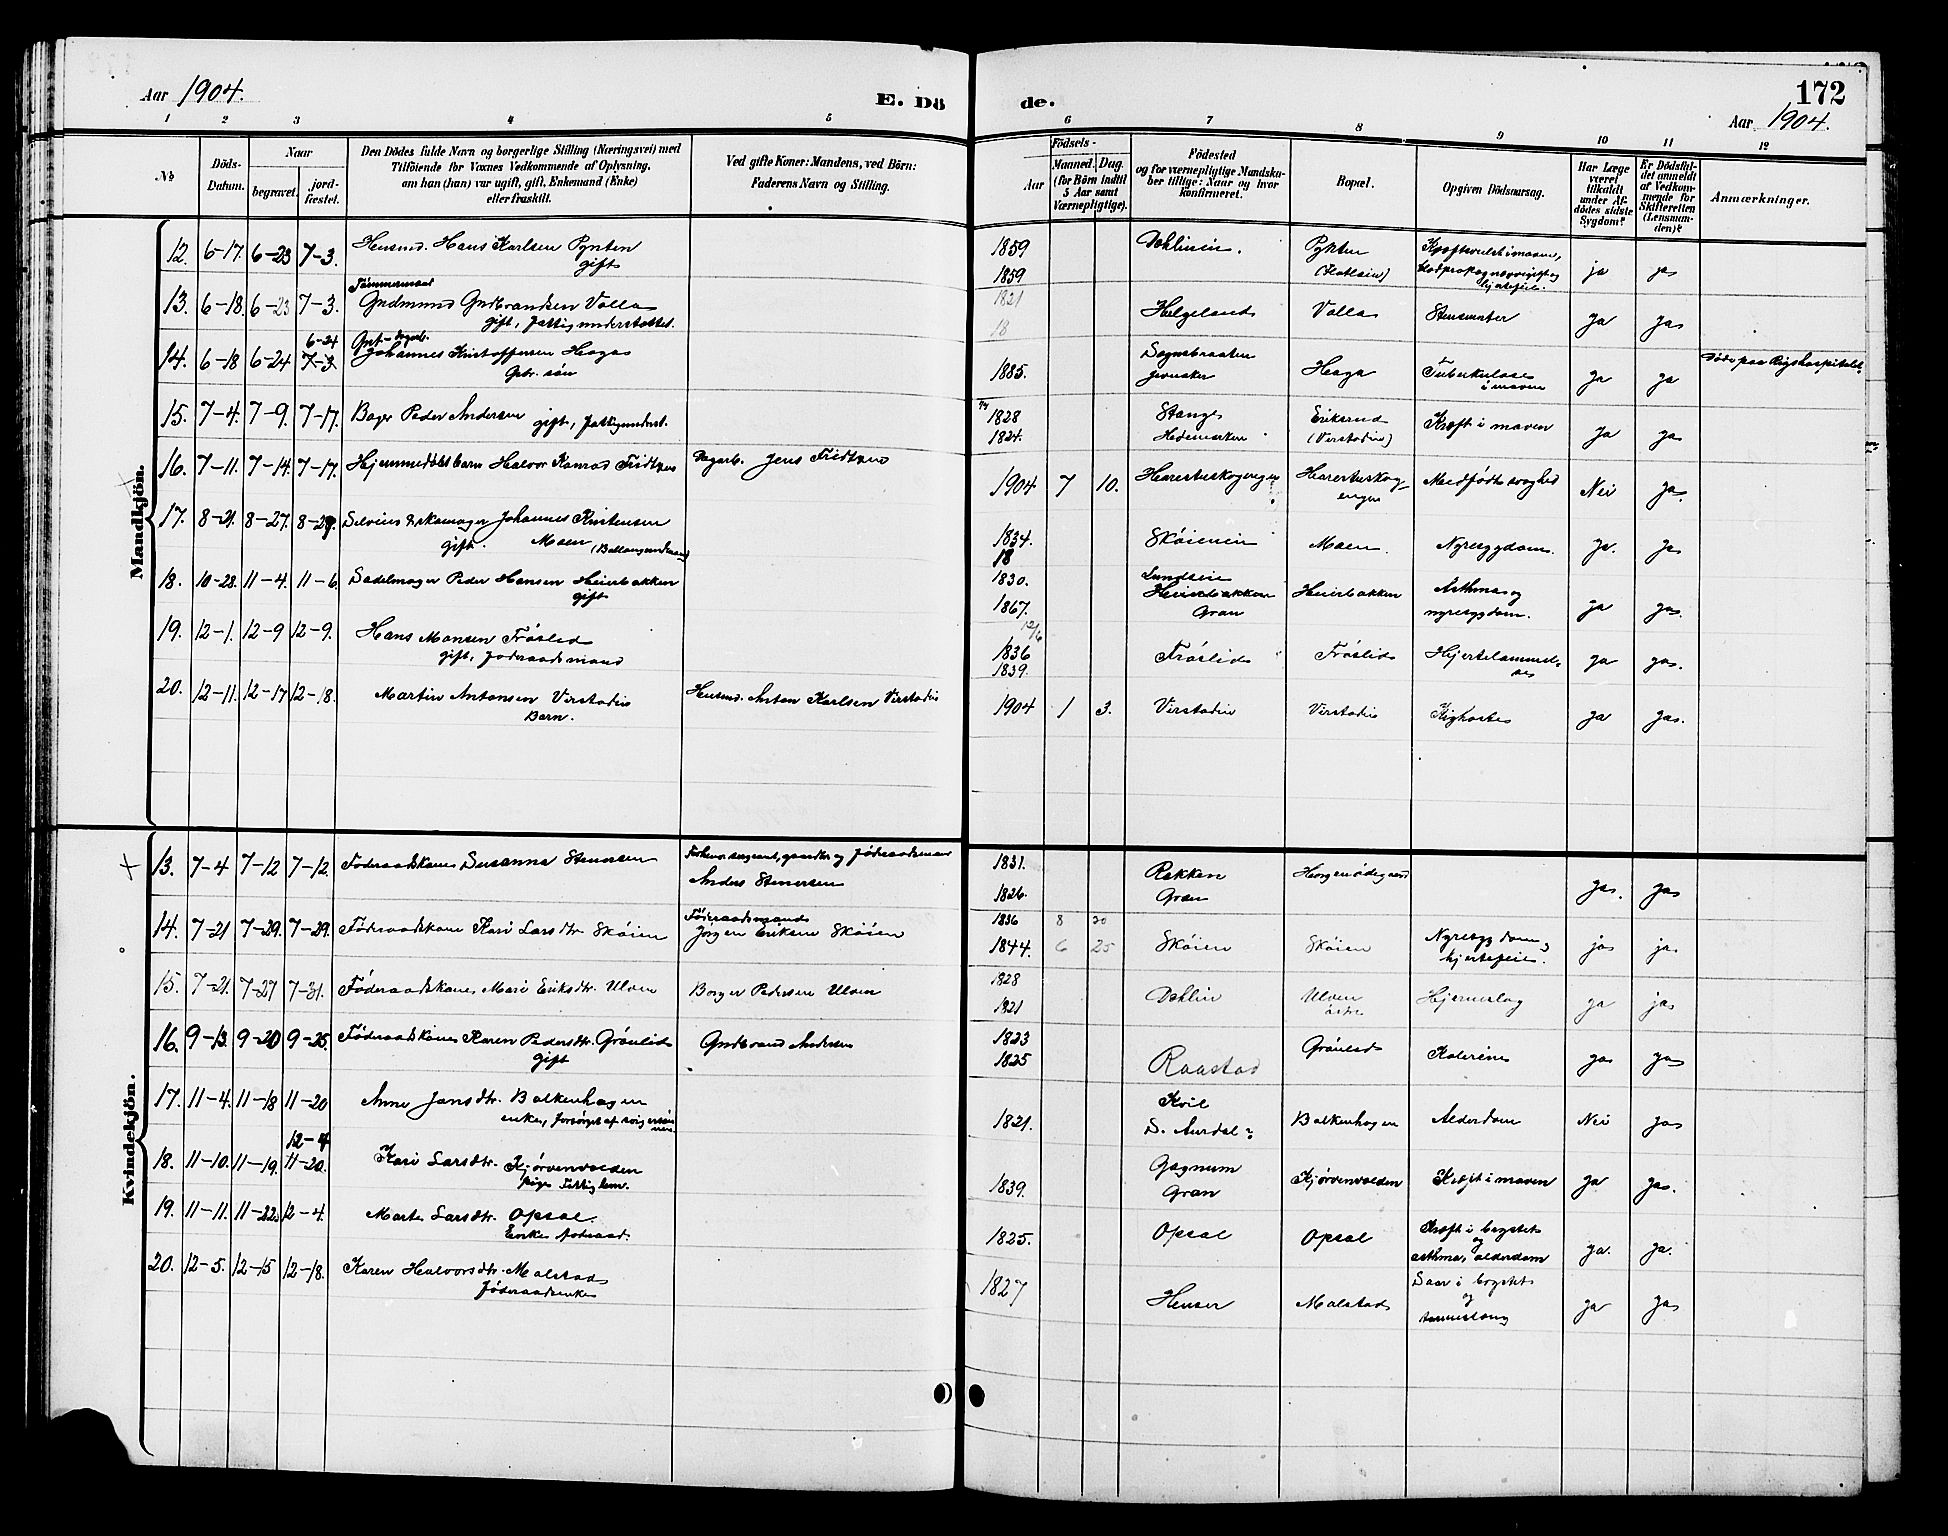 Aar 1904.
E. Dö
de.
172
Aar 1904.
1 2 3 4 5 6 7 8 9 10 11 12
No
Döds-Datum.
Naar
begravet.
jordfæstet.
Den Dödes fulde Navn og borgerlige Stilling (Næringsvei) med
Tilföiende for Voxnes Vedkommende af Oplysning,
om han (hun) var ugift, gift, Enkemand (Enke)
eller fraskilt.
Ved gifte Koner: Mandens, ved Börn:
Faderens Navn og Stilling.
Födsels-
Aar
Maaned. Dag.
(for Börn indtil
5 Aar samt
Værnepligtige).
Födested
og for værnepligtige Mandska-
ber tillige: Naar og hvor
konfirmeret.
Bopæl.
Opgiven Dödsaarsag.
Har Læge
været
tilkaldt
under Af-
dödes sidste
Sygdom?
Er Dödsfal-
det anmeldt
af Vedkom-
mende for
Skifteretten
(Lensman-
den)?
Anmærkninger.
Mandkjön.
12. 6-17. 6-23 7-3. Husmd. Hans Karlsen Pynten
gift
1859
1859
Dehlineie. Pynten
ja ja
13. 6-18. 6-23 7-3. Tømmermand
Gudmund Gudbrandsen Volla
gift, fattigunderstøttet.
1821
18
Helgeland Volla ja ja
6-24
14. 6-18 6-24 7-3 Johannes Kristoffersen Haga
Gbr. søn
1885.
Sognsbraaten
Jevnaker Haga Tuberkulose
i maven ja ja Døde paa Rigshospitalet.
15. 7-4. 7-9. 7-17. Peder Andersen gift, fattigunderst.
1828
1824.
Stange
Hedemarken Eriksrud
(Virstadeie) Kræft i maven ja ja
16. 7-11. 7-14. 7-17. Hjemmedøbt barn Halvor Konrad Dagarb. Jens
1904 7 10. Harestuskogengen Harestuskog-
engen Medfødt svaghed Nei ja.
17. 8-21. 8-27. 8-29. Selveier & skomager Johannes Kristensen
gift. Moen
1834.
18
Skøieneie Moen. Nyresygdom. ja. ja
18. 10-28. 11-4. 11-6. Sadelmager Peder Hansen Heierbakken
gift
1830.
1867.
Lundseie
Heierbakken
Gran Heierbakken Asthma og
nyresygdom. ja ja.
19. 12-1. 12-9 12-9. Hans Monsen Frøslid
gift, føderaadsmand
12/6
1836
1839.
Frøslid Frøslid Hjertelammelse ja ja.
20. 12-11. 12-17 12-18. Martin Antonsen Virstadeie
Barn. Husmd. Anton Karlsen Virstadeie
1904 1 3. Virstadeie Virstadeie Kighoste ja ja.
Kvindekjön.
13. 7-4 7-12 7-12. Føderaadskone Susanna Stenersen Forhenv. sergeant, gaardbr og føderaadsmand
Anders Stenersen
1831.
1826.
Rækken
Gran ja. ja
14. 7-21 7-29. 7-29. Føderaadskone Kari Larsdtr. Skøien Føderaadsmand
Jørgen Eriksen Skøien
1836 8 20
1844. 6 25
Skøien Skøien Nyresygdom,
hjertefeil. ja ja
15. 7-21. 7-27 7-31. Føderaadskone Mari Eriksdtr. Ulven Borger Pedersen Ulven
1828
1821
Dehlin Ulven
østre Hjerneslag ja ja
16. 9-13. 9-20 9-25. Føderaadskone Karen Pedersdtr. Grønlid
gift Gudbrand Andersen
1823
1825
Raastad Grønlid Kolerine ja ja
17. 11-4. 11-18 11-20 Anne Jansdtr. Balkenhagen
enke, forsørget af svigersønnen
1821.
S. Aurdal? Balkenhagen Alderdom Nei ja
12-4
18. 11-10. 11-19. 11-20. Kari Larsdtr. Kjørvenvolden
pige Fattiglem.
1839.
Gagnum
Gran Kjørvenvolden Kræft i maven ja ja.
19. 11-11. 11-22. 12-4. Marte Larsdtr. Opsal.
Enke føderaad.
1825.
Opsal Opsal Kræft i brystet
og
asthma, alderdom ja. ja.
20. 12-5. 12-15 12-18. Karen Halvorsdtr. Molstad
føderaadsenke
1827
Heuser Molstad Saar i brystet
og ja ja